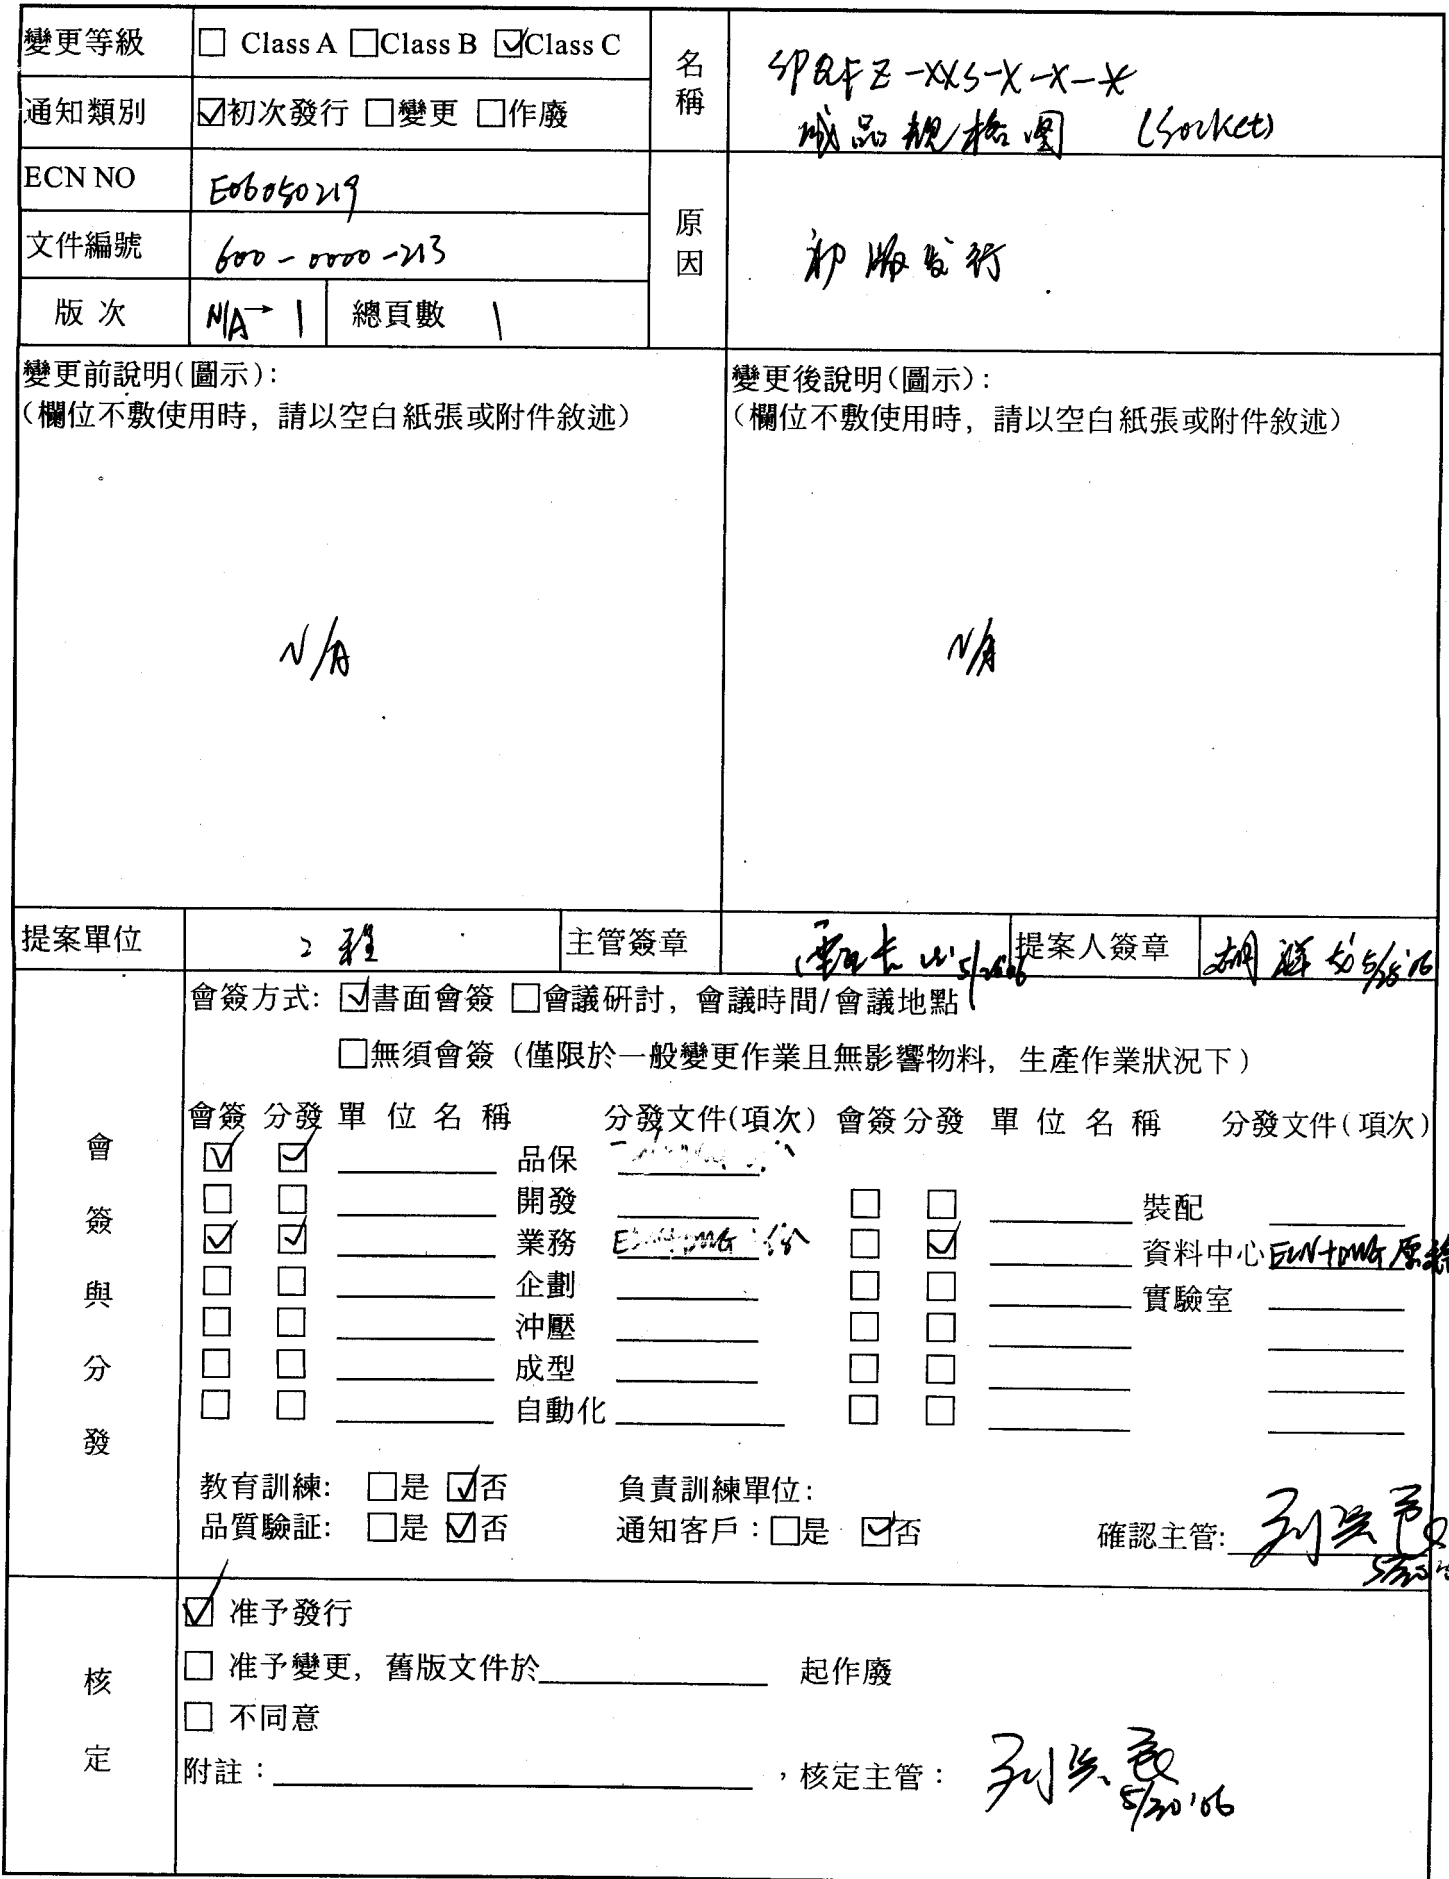 變更等級 □ Class A □Class B ☑Class C
名稱 SPQFZ-XXS-X-X-X
成品規格圖 (Socket)
通知類別 ☑初次發行 □變更 □作廢
ECN NO E06050219
原因 初版发行
文件編號 600-0000-213
版次 N/A→1 總頁數 1
變更前說明(圖示):
(欄位不敷使用時, 請以空白紙張或附件敘述)
N/A
變更後說明(圖示):
(欄位不敷使用時, 請以空白紙張或附件敘述)
N/A
提案單位 工程 主管簽章 提案人簽章
會簽與分發
會簽方式: ☑書面會簽 □會議研討, 會議時間/會議地點
□無須會簽 (僅限於一般變更作業且無影響物料, 生產作業狀況下)
會簽 分發 單位名稱 分發文件(項次) 會簽 分發 單位名稱 分發文件(項次)
☑ ☑ 品保
□ □ 開發 □ □ 裝配
☑ ☑ 業務 □ ☑ 資料中心 ECN+DWG 原稿
□ □ 企劃 □ □ 實驗室
□ □ 沖壓 □ □
□ □ 成型 □ □
□ □ 自動化 □ □
教育訓練: □是 ☑否 負責訓練單位:
品質驗証: □是 ☑否 通知客戶:□是 ☑否 確認主管:
核定
☑ 准予發行
□ 准予變更, 舊版文件於 起作廢
□ 不同意
附註: ,核定主管:
5/30'06